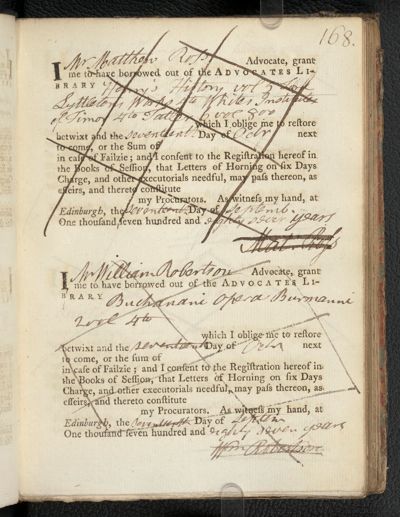 168.
I Mr Matthew Ross Advocate, grant
me to have borrowed out of the ADVOCATES LI-
BRARY Henry's History vol 5
Lyttletons Works 4to Whites Institutes
of Timor 4to 2 vol 800
which I oblige me to restore
betwixt and the seventeenth Day of Octr next
to come, or the Sum of
in case of Failzie; and I consent to the Registration hereof in
the Books of Session, that Letters of Horning on six Days
Charge, and other executorials needful, may pass thereon, as
effeirs, and thereto constitute
my Procurators. As witness my hand, at
Edinburgh, the seventeenth Day of Septemb.
One thousand seven hundred and eighty seven years
Mat: Ross
I Mr William Robertson Advocate, grant
me to have borrowed out of the ADVOCATES LI-
BRARY Buchanani opera Burmanni
2 vol 4to
which I oblige me to restore
betwixt and the seventeenth Day of Octr next
to come, or the sum of
in case of Failzie; and I consent to the Registration hereof in
the Books of Session, that Letters of Horning on six Days
Charge, and other executorials needful, may pass thereon, as
effeirs, and thereto constitute
my Procurators. As witness my hand, at
Edinburgh, the seventeenth Day of Septem
One thousand seven hundred and eighty seven years
Wm Robertson